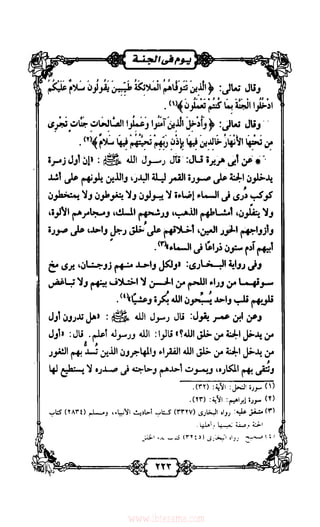 يوم فى الجنة
وقال تعالى: ﴿الَّذِينَ تَتَوَفَّاهُمُ الْمَلائِكَةُ طَيِّبِينَ يَقُولُونَ سَلامٌ عَلَيْكُمُ
ادْخُلُوا الْجَنَّةَ بِمَا كُنتُمْ تَعْمَلُونَ﴾(١).
وقال تعالى: ﴿وَأُدْخِلَ الَّذِينَ آمَنُوا وَعَمِلُوا الصَّالِحَاتِ جَنَّاتٍ تَجْرِي
مِن تَحْتِهَا الأَنْهَارُ خَالِدِينَ فِيهَا بِإِذْنِ رَبِّهِمْ تَحِيَّتُهُمْ فِيهَا سَلامٌ﴾(٢).
* عن أبى هريرة قال: قال رسول الله ﷺ: «إن أول زمرة
يدخلون الجنة على صورة القمر ليلة البدر، والذين يلونهم على أشد
كوكب درى فى السماء إضاءة لا يبولون ولا يتغوطون ولا يمتخطون
ولا يتفلون، أمشاطهم الذهب، ورشحهم المسك، ومجامرهم الألوة،
وأزواجهم الحور العين، أخلاقهم على خلق رجل واحد، على صورة
أبيهم آدم ستون ذراعًا فى السماء»(٣).
وفى رواية البخارى: «ولكل واحد منهم زوجتان، يرى مخ
سوقهما من وراء اللحم من الحسن لا اختلاف بينهم ولا تباغض
قلوبهم قلب واحد يُسبحون الله بكرة وعشيًا»(٤).
وعن ابن عمر يقول: قال رسول الله ﷺ: «هل تدرون أول
من يدخل الجنة من خلق الله؟» قالوا: الله ورسوله أعلم. قال: «أول
من يدخل الجنة من خلق الله الفقراء والمهاجرون الذين تُسدُّ بهم الثغور
وتُتقى بهم المكاره، ويموت أحدهم وحاجته فى صدره لا يستطيع لها
(١) سورة النحل: الآية: (٣٢).
(٢) سورة إبراهيم: الآية: (٢٣).
(٣) متفق عليه: رواه البخارى (٣٣٢٧) كتاب أحاديث الأنبياء، ومسلم (٢٨٣٤) كتاب
الجنة وصفة نعيمها وأهلها.
(٤) صحيح: رواه البخارى (٣٢٤٥) كتاب بدء الخلق.
٢٢٣
www.ibtesama.com